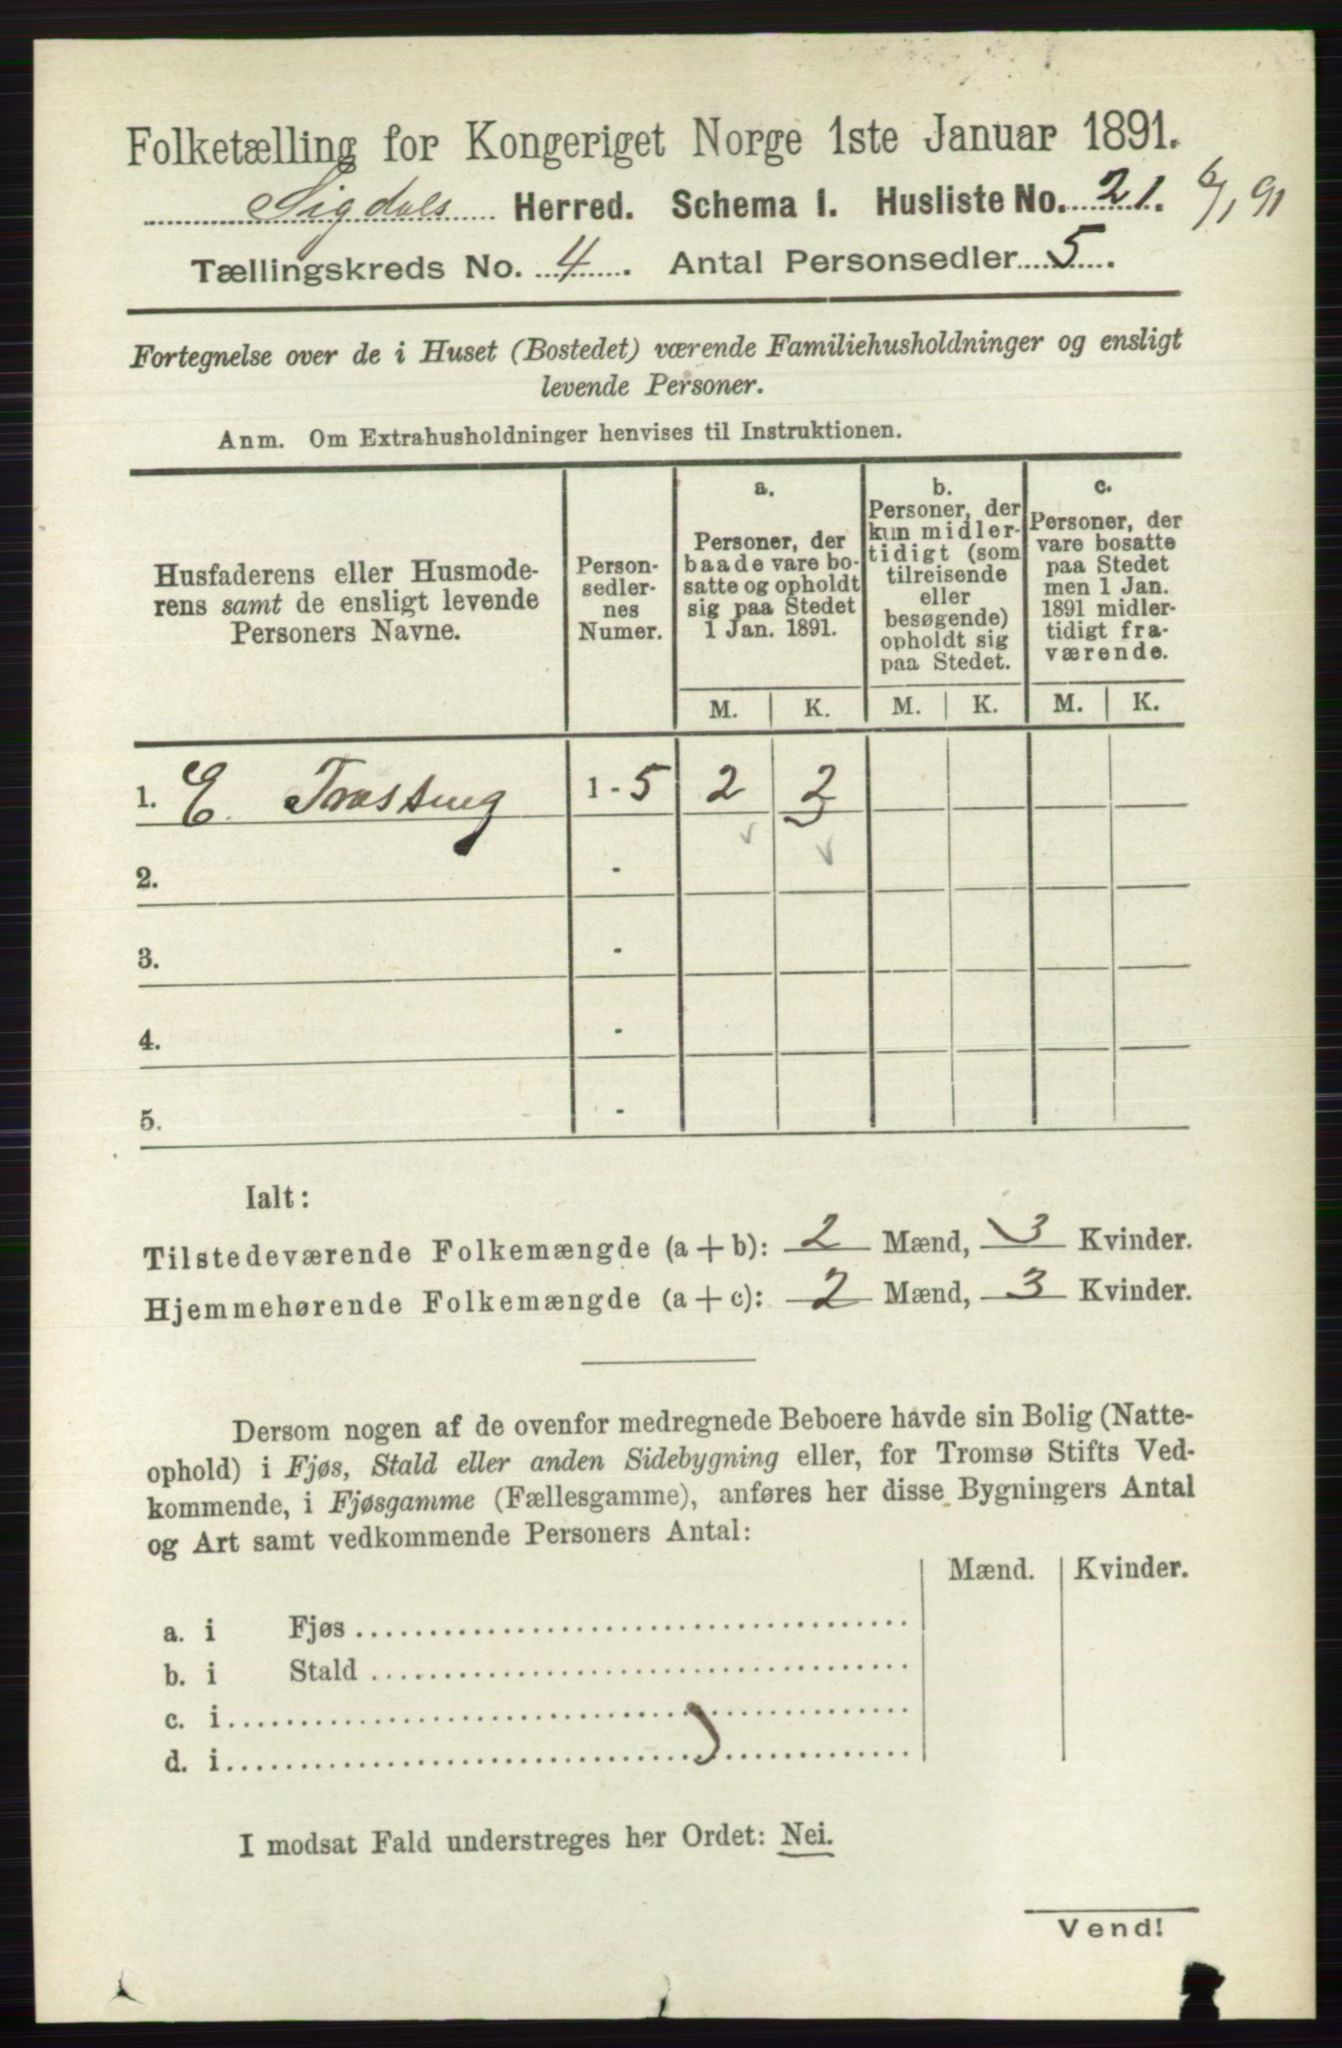 Folketælling for Kongeriget Norge 1ste Januar 1891.
Sigdals Herred. Schema 1. Husliste No. 21. 6/1 91
Tællingskreds No. 4. Antal Personsedler 5.
Fortegnelse over de i Huset (Bostedet) værende Familiehusholdninger og ensligt
levende Personer.
Anm. Om Extrahusholdninger henvises til Instruktionen.
Husfaderens eller Husmode-
rens samt de ensligt levende
Personers Navne.
Person-
sedler-
nes
Numer.
a.
Personer, der
baade vare bo-
satte og opholdt
sig paa Stedet
1 Jan. 1891.
b.
Personer, der
kun midler-
tidigt (som
tilreisende
eller
besøgende)
opholdt sig
paa Stedet.
c.
Personer, der
vare bosatte
paa Stedet
men 1 Jan.
1891 midler-
tidigt fra-
værende.
M. K. M. K. M. K.
1. E. 1 - 5 2 3
2. -
3. -
4. -
5. -
Ialt:
Tilstedeværende Folkemængde (a + b): 2 Mænd, 3 Kvinder.
Hjemmehørende Folkemængde (a + c): 2 Mænd, 3 Kvinder.
Dersom nogen af de ovenfor medregnede Beboere havde sin Bolig (Natte-
ophold) i Fjøs, Stald eller anden Sidebygning eller, for Tromsø Stifts Ved-
kommende, i Fjøsgamme (Fællesgamme), anføres her disse Bygningers Antal
og Art samt vedkommende Personers Antal:
Mænd. Kvinder.
a. i Fjøs
b. i Stald
c. i
d. i
I modsat Fald understreges her Ordet: Nei.
Vend!